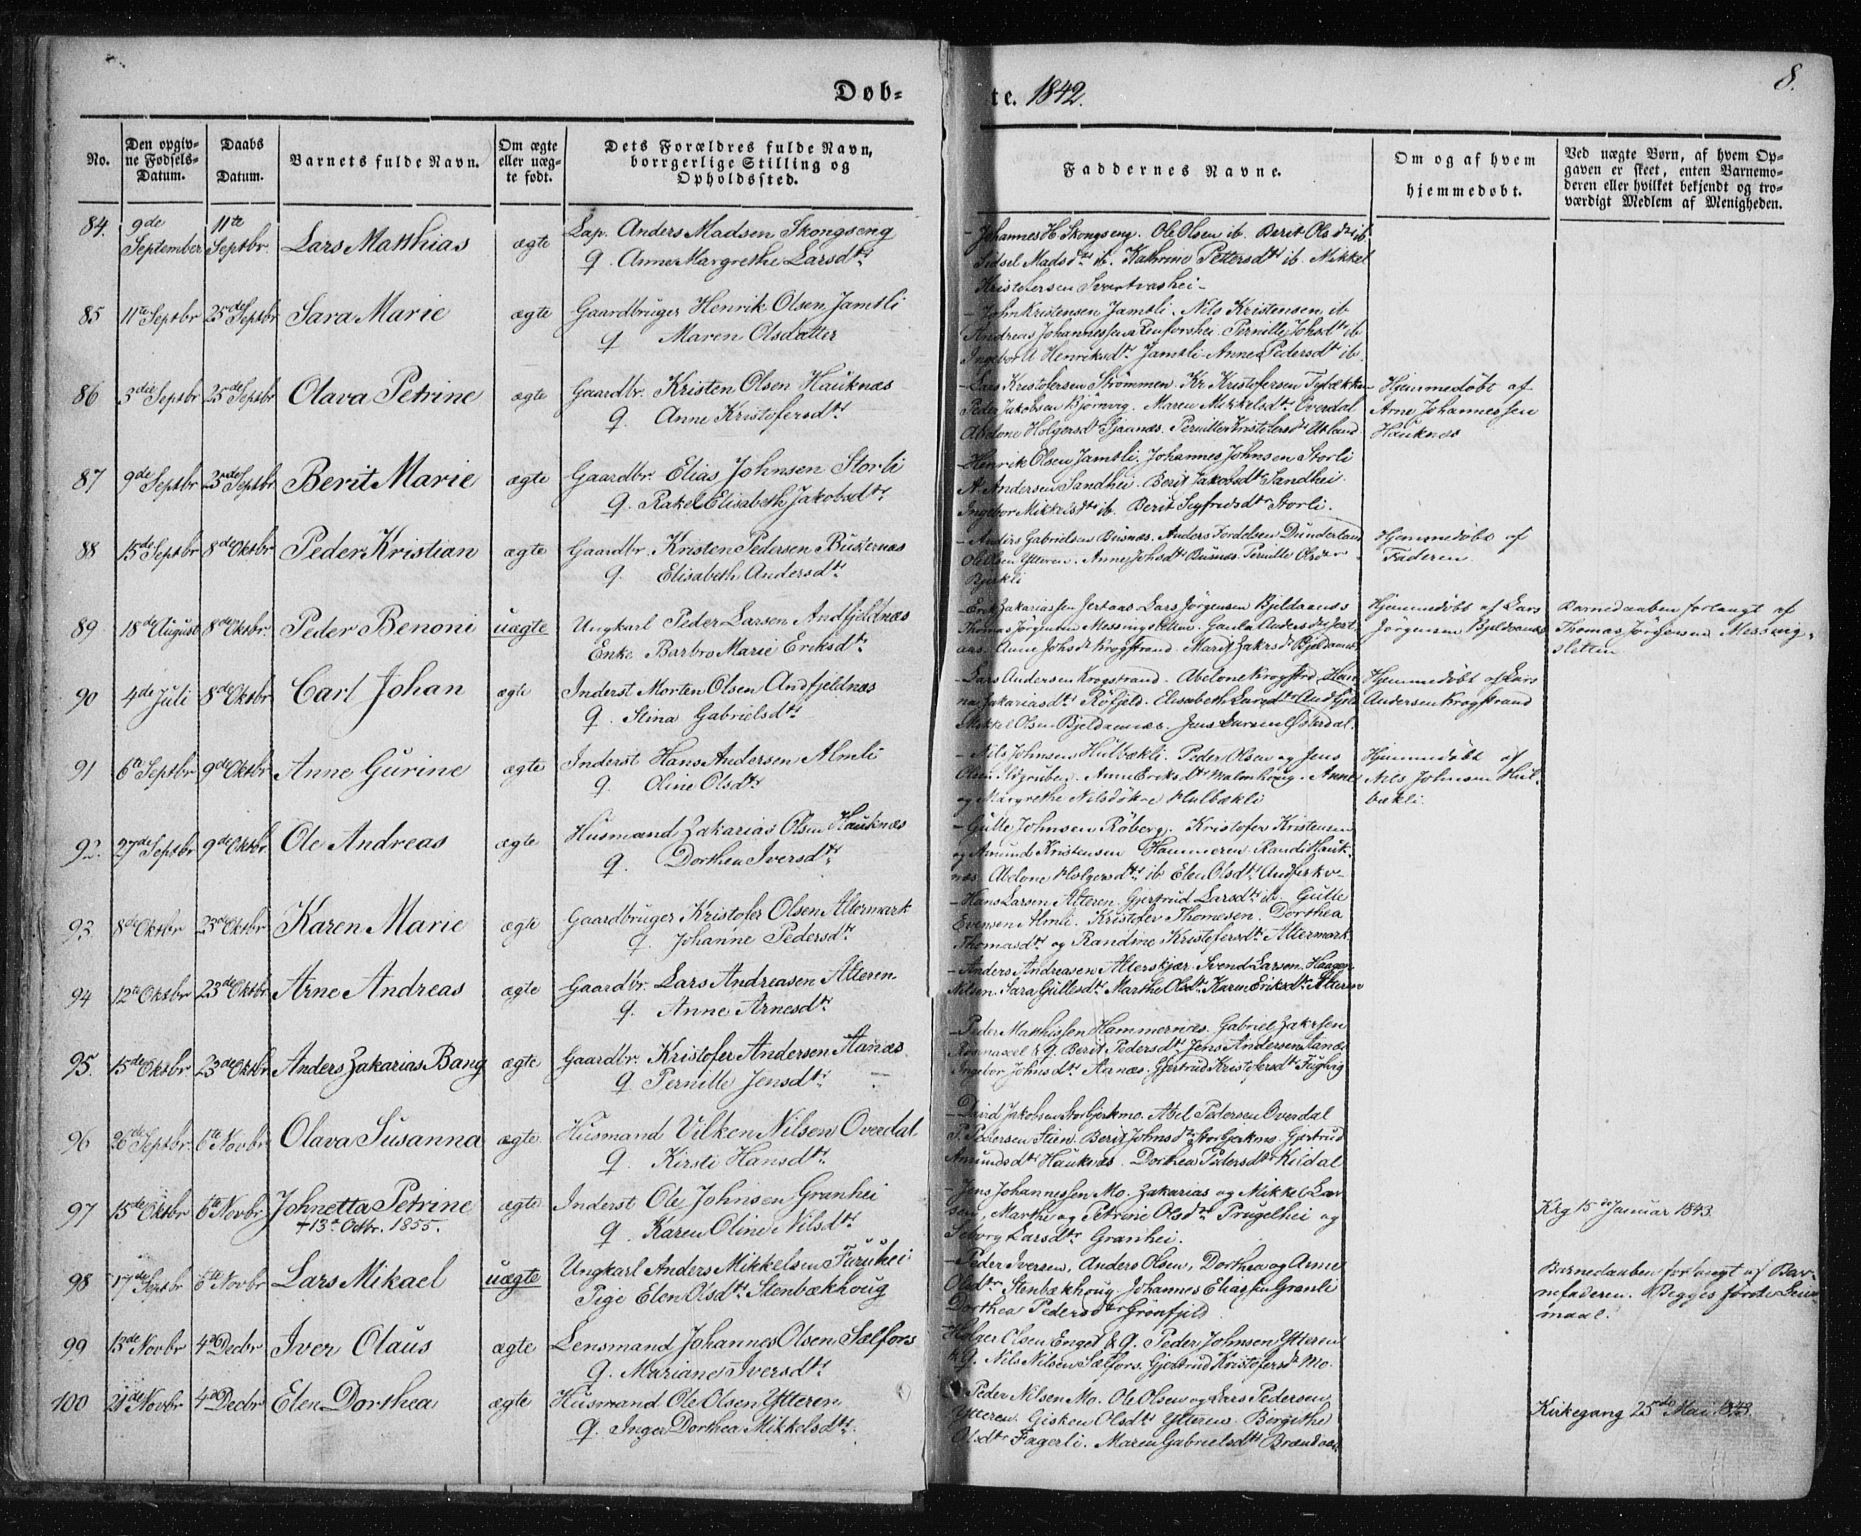 Døb-
te. 1842.
8.
No.
Den opgiv-
ne Fødsels-
Datum.
Daabs
Datum.
Barnets fulde Navn.
Om ægte
eller uæg-
te født.
Dets Forældres fulde Navn,
borrgerlige Stilling og
Opholdssted.
Faddernes Navne.
Om og af hvem
hjemmedøbt.
Ved uægte Børn, af hvem Op-
gaven er skeet, enten Barnemo-
deren eller hvilket bekjendt og tro-
værdigt Medlem af Menigheden.
84. 9de September 11te Septbr. Lars Matthias ægte Lap. Anders Madsen Skongseng
q. Anne Margrethe Larsdtr
- Johannes H. Skongseng. Ole Olsen ib. Berit Olsdtr ib.
Sidsel Madsdtr ib. Kathrine Pettersdtr ib. Mikkel
Kristofersen Svartvashei -
85 11te Septbr 25de Septbr Sara Marie ægte Gaardbruger Henrik Olsen Jamtli
q Maren Olsdatter
- John Kristensen Jamtli. Nils Kristensen ib
Andreas Johannessen Renforshei. Pernille Johsdtr ib
Henriksdtr Jamtli. Anne Pedersdtr ib.
86 Septbr 25de Septbr Olava Petrine ægte Gaardbr. Kristen Olsen Hauknæs
q. Anne Kristofersdtr
- Lars Kristofersen Strømmen. Kr. Kristofersen
Peder Jakobsen Bjørnvig. Maren Mikkelsdtr Overdal
Abelone Holgersdtr Pernille Kristofersdtr
Hjemmedøbt af
Arne Johannessen
Hauknæs
87 9de Septbr 25de Septbr Berit Marie ægte Gaardbr. Elias Johnsen Storli
q. Rakel Elisabeth Jakobsdtr
- Henrik Olsen Jamtli. Johannes Johnsen Storli
A. Andersen Sandhei. Berit Jakobsdtr Sandhei.
Ingebor Mikkelsdtr ib. Berit Segfridsdtr Storli.
88 15de Septbr 8de Oktbr Peder Kristian ægte Gaardbr. Kristen Pedersen Busternæs
q. Elisabeth Andersdtr
- Anders Gabrielsen Busnæs. Anders Fordelsen Dunderland
Ole Olsen Ytteren. Anne Johsdtr Busnæs. Pernille Olsdtr
Bjerkli
Hjemmedøbt af
Faderen
89 18de August 8de Oktbr Peder Benoni uægte Ungkarl Peder Larsen Andfjeldnæs
Enke Barbro Marie Eriksdtr
- Erik Zakariassen Lars Jørgensen Bjeldaanes
Thomas Jørgensen Messingsletten. Andersdtr
Anne Johsdtr Krogstrand. Marit Zakrsdtr Bjeldaanes
Hjemmedøbt af Lars
Jørgensen Bjeldaanes
Barnedaaben forlangt af
Thomas Jørgensen Messing-
sletten
90 4de Juli 8de Oktbr Carl Johan ægte Inderst Morten Olsen Andfjeldnæs
q. Stina Gabrielsdtr
- Lars Andersen Krogstrand. Abelone Krogstrd Han-
na Zakariasdtr Røfjeld. Elisabeth Larsdtr Andfjeld
Mikkel Olsen Bjeldaanæs. Jens Larsen
Hjemmedøbt af Lars
Andersen Krogstrand
91 6te Septbr 9de Oktbr Anne Gurine ægte Inderst Hans Andersen Almli
q. Oline Olsdtr
- Nils Johnsen Hulbækli. Peder Olsen og Jens
Olsen Ildgruben. Ann Eriksdtr Malonhoug. Anne
og Margrethe Nilsdøtre Hulbækli
Hjemmedøbt af
Nils Johnsen Hul-
bækli.
92. 27de Septbr 9de Oktbr Ole Andreas ægte Husmand Zakarias Olsen Hauknæs
q. Dorthea Iversdtr
- Gulle Johnsen Røberg. Kristofer Kristensen
og Amund Kristensen Hammeren. Randi Hauk-
næs. Abelone Holgersdtr ib Elen Olsdtr
93. 8de Oktbr 23de Oktbr Karen Marie ægte Gaardbruger Kristofer Olsen Altermark
q. Johanne Pedersdtr
- Hans Larsen Alteren. Gjertrud Larsdtr ib. Gulle
Evensen Almli. Kristofer Thomesen. Dorthea
Thomasdtr og Randine Kristofersdtr Altermark
94 12te Oktbr 23de Oktbr Arne Andreas ægte Gaardbr. Lars Andreasen Alteren
q. Anne Arnesdtr
- Anders Andreasen Alterskjær. Svend Larsen. Haagen
Nilsen. Sara Gullesdtr Marthe Olsdtr Karen Eriksdtr Alteren
95. 15de Oktbr 23de Oktbr Anders Zakarias Bang ægte Gaardbr. Kristofer Andersen Aanæs
q Pernille Jensdtr
- Peder Matthissen Hammernæs. Gabriel Zakrsen
& q. Berit Pedersdtr Jens Andersen Aanæs
Ingebor Johnsdtr Aanæs. Gjertrud Kristofersdtr Fuglvig
96 26de Septbr. 6te Novbr Olava Susanna ægte Husmand Vilken Nilsen Overdal
q. Kirsti Hansdtr.
- David Jakobsen Abel Pedersen Overdal
P. Pedersen Stien. Berit Johnsdtr Gjertrud
Amundsdtr Hauknæs. Dorthea Pedersdtr Kildal
97 15de Oktbr 6te Novbr Johnetta Petrine ægte Inderst Ole Johnsen Granhei
+ 13de Octbr. 1855.
q. Karen Oline Nilsdtr
- Jens Johannessen Mo. Zakarias og Mikkel Lar-
sen, Marthe og Petrine Olsdtr Prugelhei og
Larsdtr Granhei.
Kkg 15de Januar 1843.
98 17de Septbr 6te Novbr Lars Mikael uægte Ungkarl Anders Mikkelsen Furuhei
Pige Elen Olsdtr Stenbækhoug
- Peder Iversen, Anders Olsen, Dorthea og Anne
Olsdtr Stenbækhoug Johannes Eliassen Granli
Dorthea Pedersdtr Grønfjeld
Barnedaaben forlangt af Bar-
nefaderen. Begges første Leier-
maal.
99 13de Novbr 4de Decbr Iver Olaus ægte Lensmand Johannes Olsen Sælfors
q. Mariane Iversdtr
Holger Olsen Enget & q. Peder Johnsen Ytteren
& q. Nils Nilsen Sælfors. Gjertrud Kristofersdtr Mo.
100 21de Novbr 4de Decbr Elen Dorthea ægte Husmand Ole Olsen Ytteren
q. Inger Dorthea Mikkelsdtr.
Peder Nilsen Mo. Ole Olsen og Lars Pedersen
Ytteren. Gisken Olsdtr Ytteren. Bergithe
Olsdtr Fagerli. Maren Gabrielsdtr
Kirkegang 25de Mai 1843.